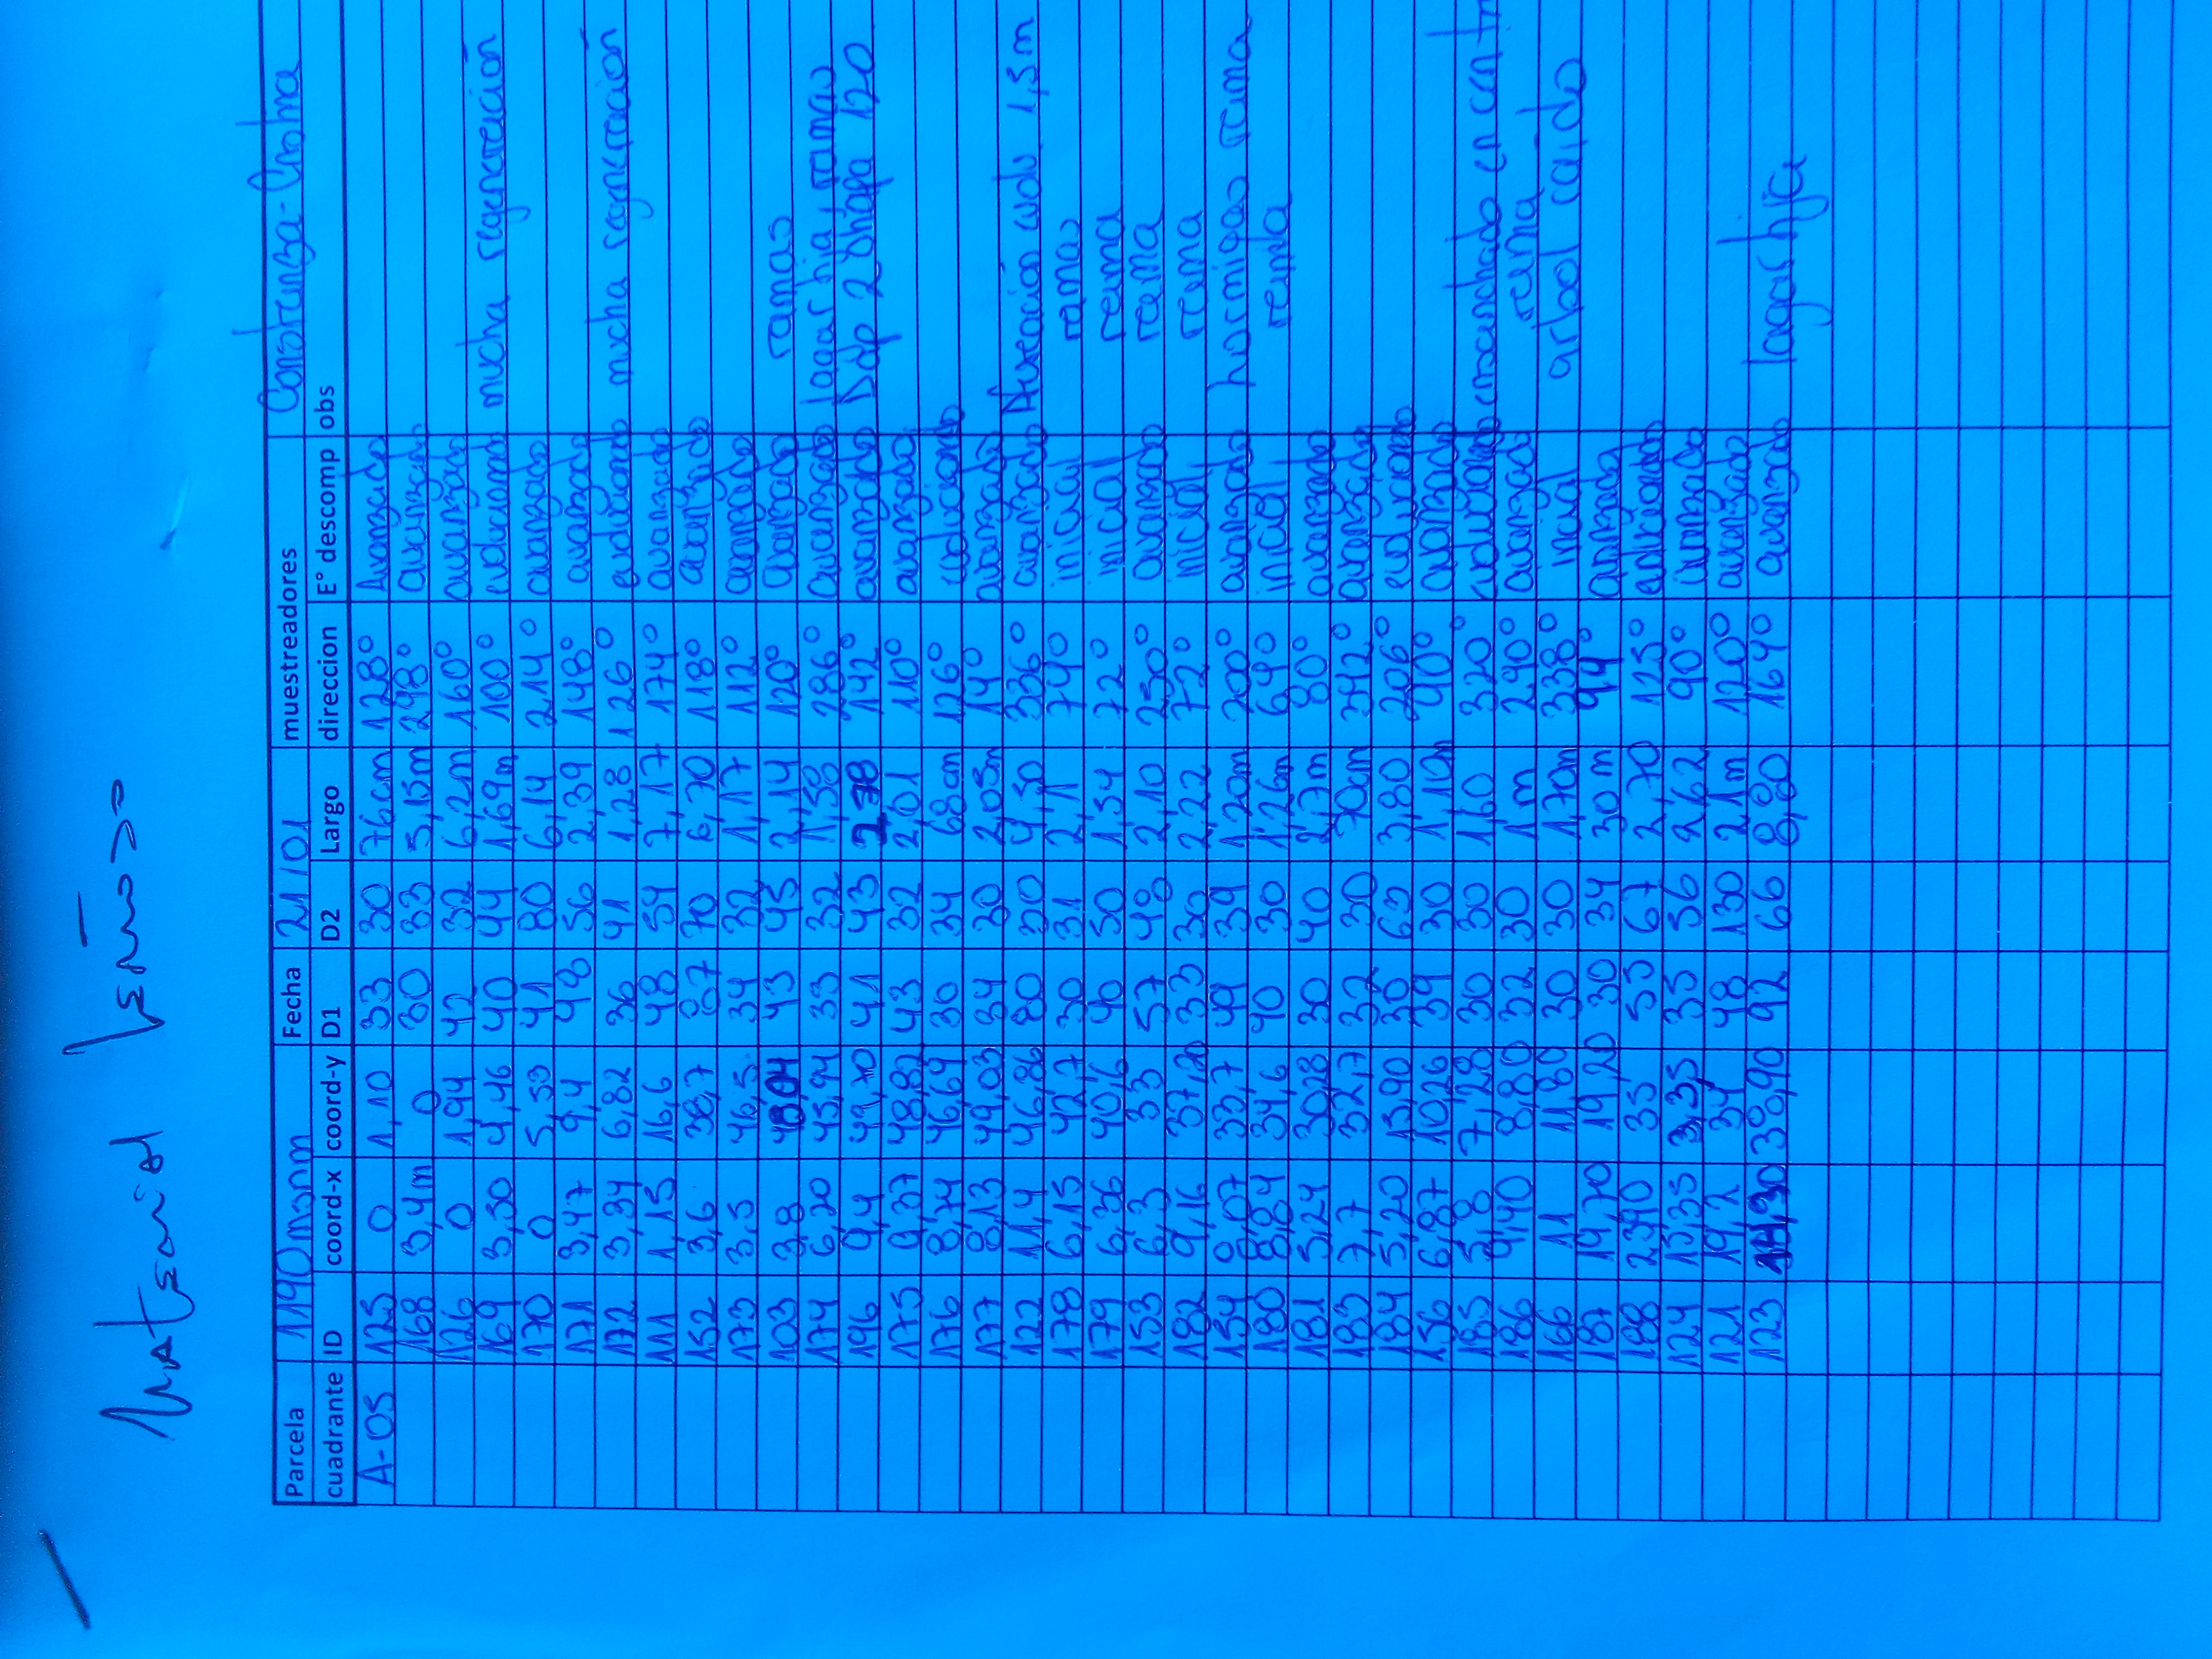 Material Leñoso
Parcela 1190msnm Fecha 21/01 muestreadores Constanza-
cuadrante ID coord-x coord-y D1 D2 Largo direccion E° descomp obs
A-OS 125 0 1,10 33 30 76cm 128° Avanzado
168 3,4m 0 30 33 5,15m 298° avanzado
126 0 1,94 42 32 6,2m 160° avanzado
169 3,50 4,46 40 44 1,69m 100° evolucionado mucha regeneración
170 0 5,53 41 80 6,14 214° avanzado
171 3,47 9,4 48 56 2,39 148° avanzado
172 3,34 6,82 36 41 1,28 126° evolucionado mucha regeneración
111 1,15 16,6 48 54 7,17 174° avanzado
152 3,6 38,7 87 70 6,70 118° avanzado
173 3,5 46,5 34 32 1,17 112° avanzado
103 3,8 48,04 43 45 2,14 120° avanzado ramas
174 6,20 45,94 33 32 1,58 286° avanzado lagartija, ramas
196 9,4 49,70 41 43 2,78 142° avanzado Dap 2 120
175 9,37 48,82 43 32 2,01 110° avanzado
176 8,74 46,64 30 34 68cm 126° evolucionado
177 8,13 49,03 34 30 2,05m 14° avanzado
122 11,4 46,86 80 30 4,50 336° avanzado 1,5m
178 6,15 42,7 30 31 2,1 74° inicial ramas
179 6,36 40,6 40 50 1,54 72° inicial rama
153 6,3 33 57 48 2,10 250° avanzado rama
182 9,16 37,20 33 30 2,22 72° inicial rama
154 8,07 33,7 49 39 1,20m 200° avanzado hormigas rama
180 8,84 34,6 40 30 1,26m 64° inicial rama
181 5,24 30,28 30 40 2,7m 80° avanzado
183 7,7 32,7 32 30 70cm 342° avanzado
184 5,20 13,90 30 63 3,80 206° evolucionado
156 6,87 10,26 39 30 1,10m 90° avanzado
185 5,8 7,28 30 30 1,60 320° evolucionado ensanchado en centr
186 9,40 8,80 32 30 1m 290° avanzado rama
166 11 11,80 30 30 1,70m 338° incial arbol caído
187 19,70 19,20 30 34 30m 94° avanzado
188 23,90 35 55 67 2,70 125° evolucionado
124 15,35 3,35 35 56 2,62 90° avanzado
121 19,2 34 48 130 2,1m 120° avanzado
123 38,90 92 66 8,80 164° avanzado lagartija